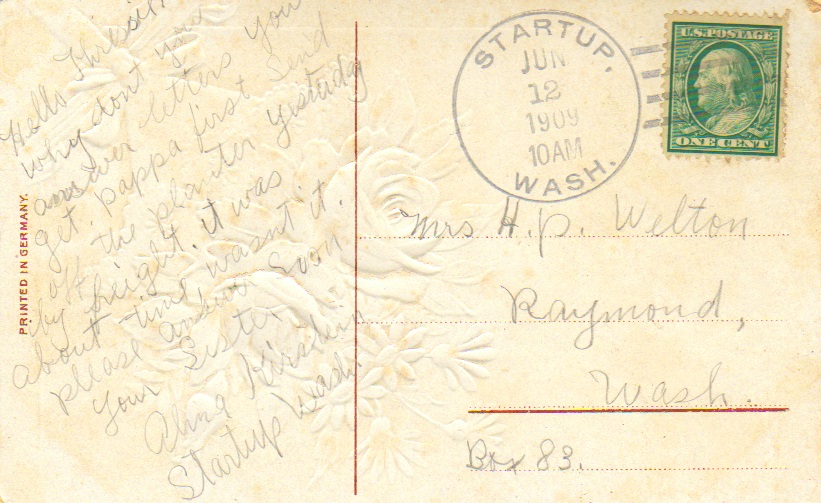 Hello
why don't you
answer letters you
get. pappa first send
off the planter yisterday
by freight. it was
about time wasn't it.
please answer soon.
your Sister
Alma Kirstein
Startup Wash.
PRINTED IN GERMANY.
STARTUP,
JUN
12
1909
10AM
WASH.
U.S. POSTAGE
ONE CENT
Mrs H.P. Welton
Raymond,
Wash.
Box 83.